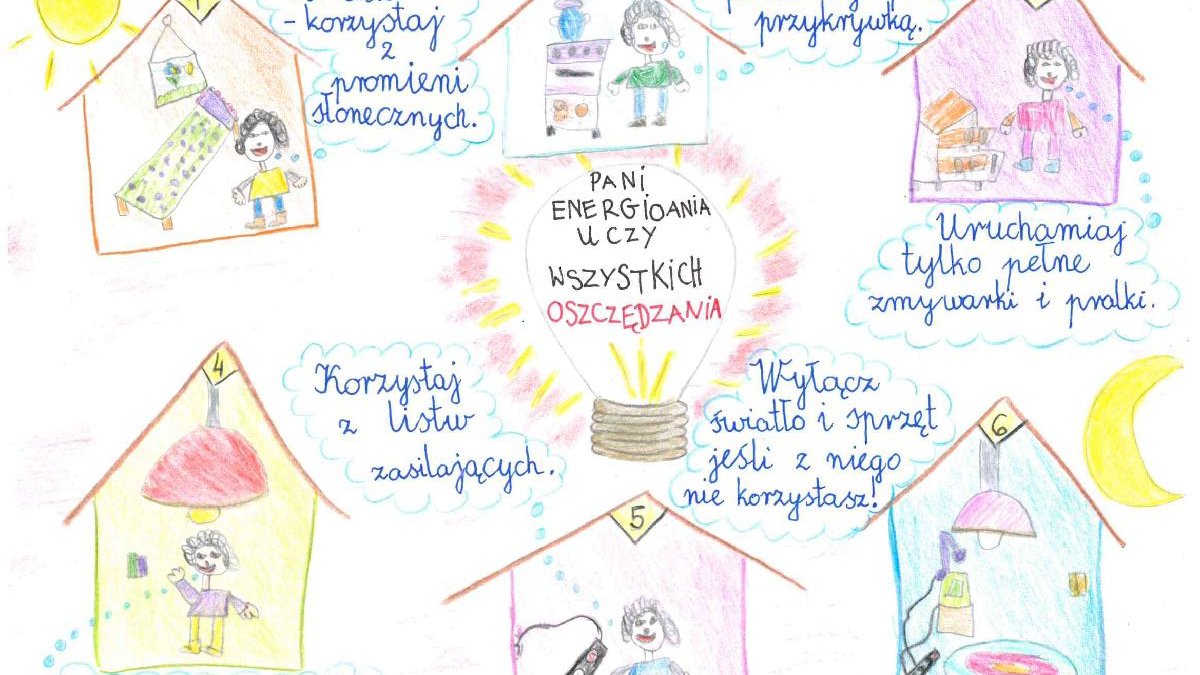 1
- korzystaj
z
promieni
słonecznych.
przykrywką.
PANI
ENERGIOANIA
UCZY
WSZYSTKICH
OSZCZĘDZANIA
Uruchamiaj
tylko pełne
zmywarki i pralki.
4
Korzystaj
z listw
zasilających.
5
Wyłącz
światło i sprzęt
jeśli z niego
nie korzystasz!
6